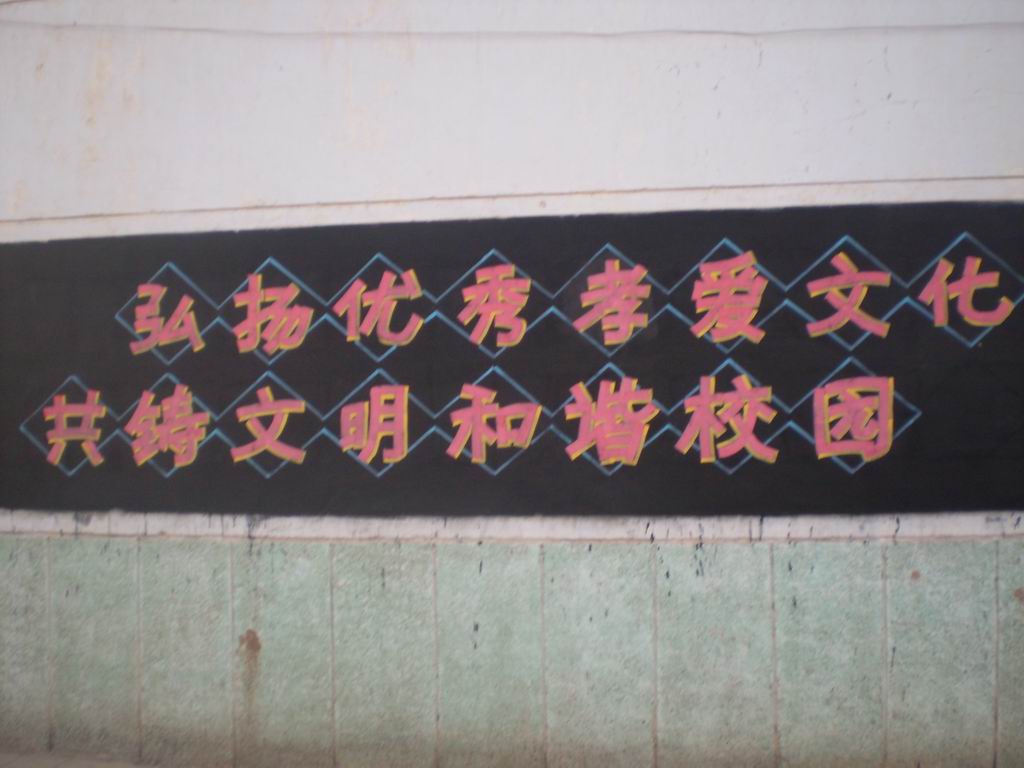 弘扬优秀孝爱文化
共铸文明和谐校园